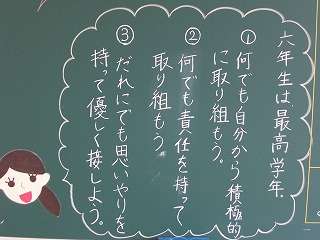 六年生は、最高学年。
①何でも自分から積極的
に取り組もう。
②何でも責任を持って
取り組もう。
③だれにでも思いやりを
持って優しく接しよう。